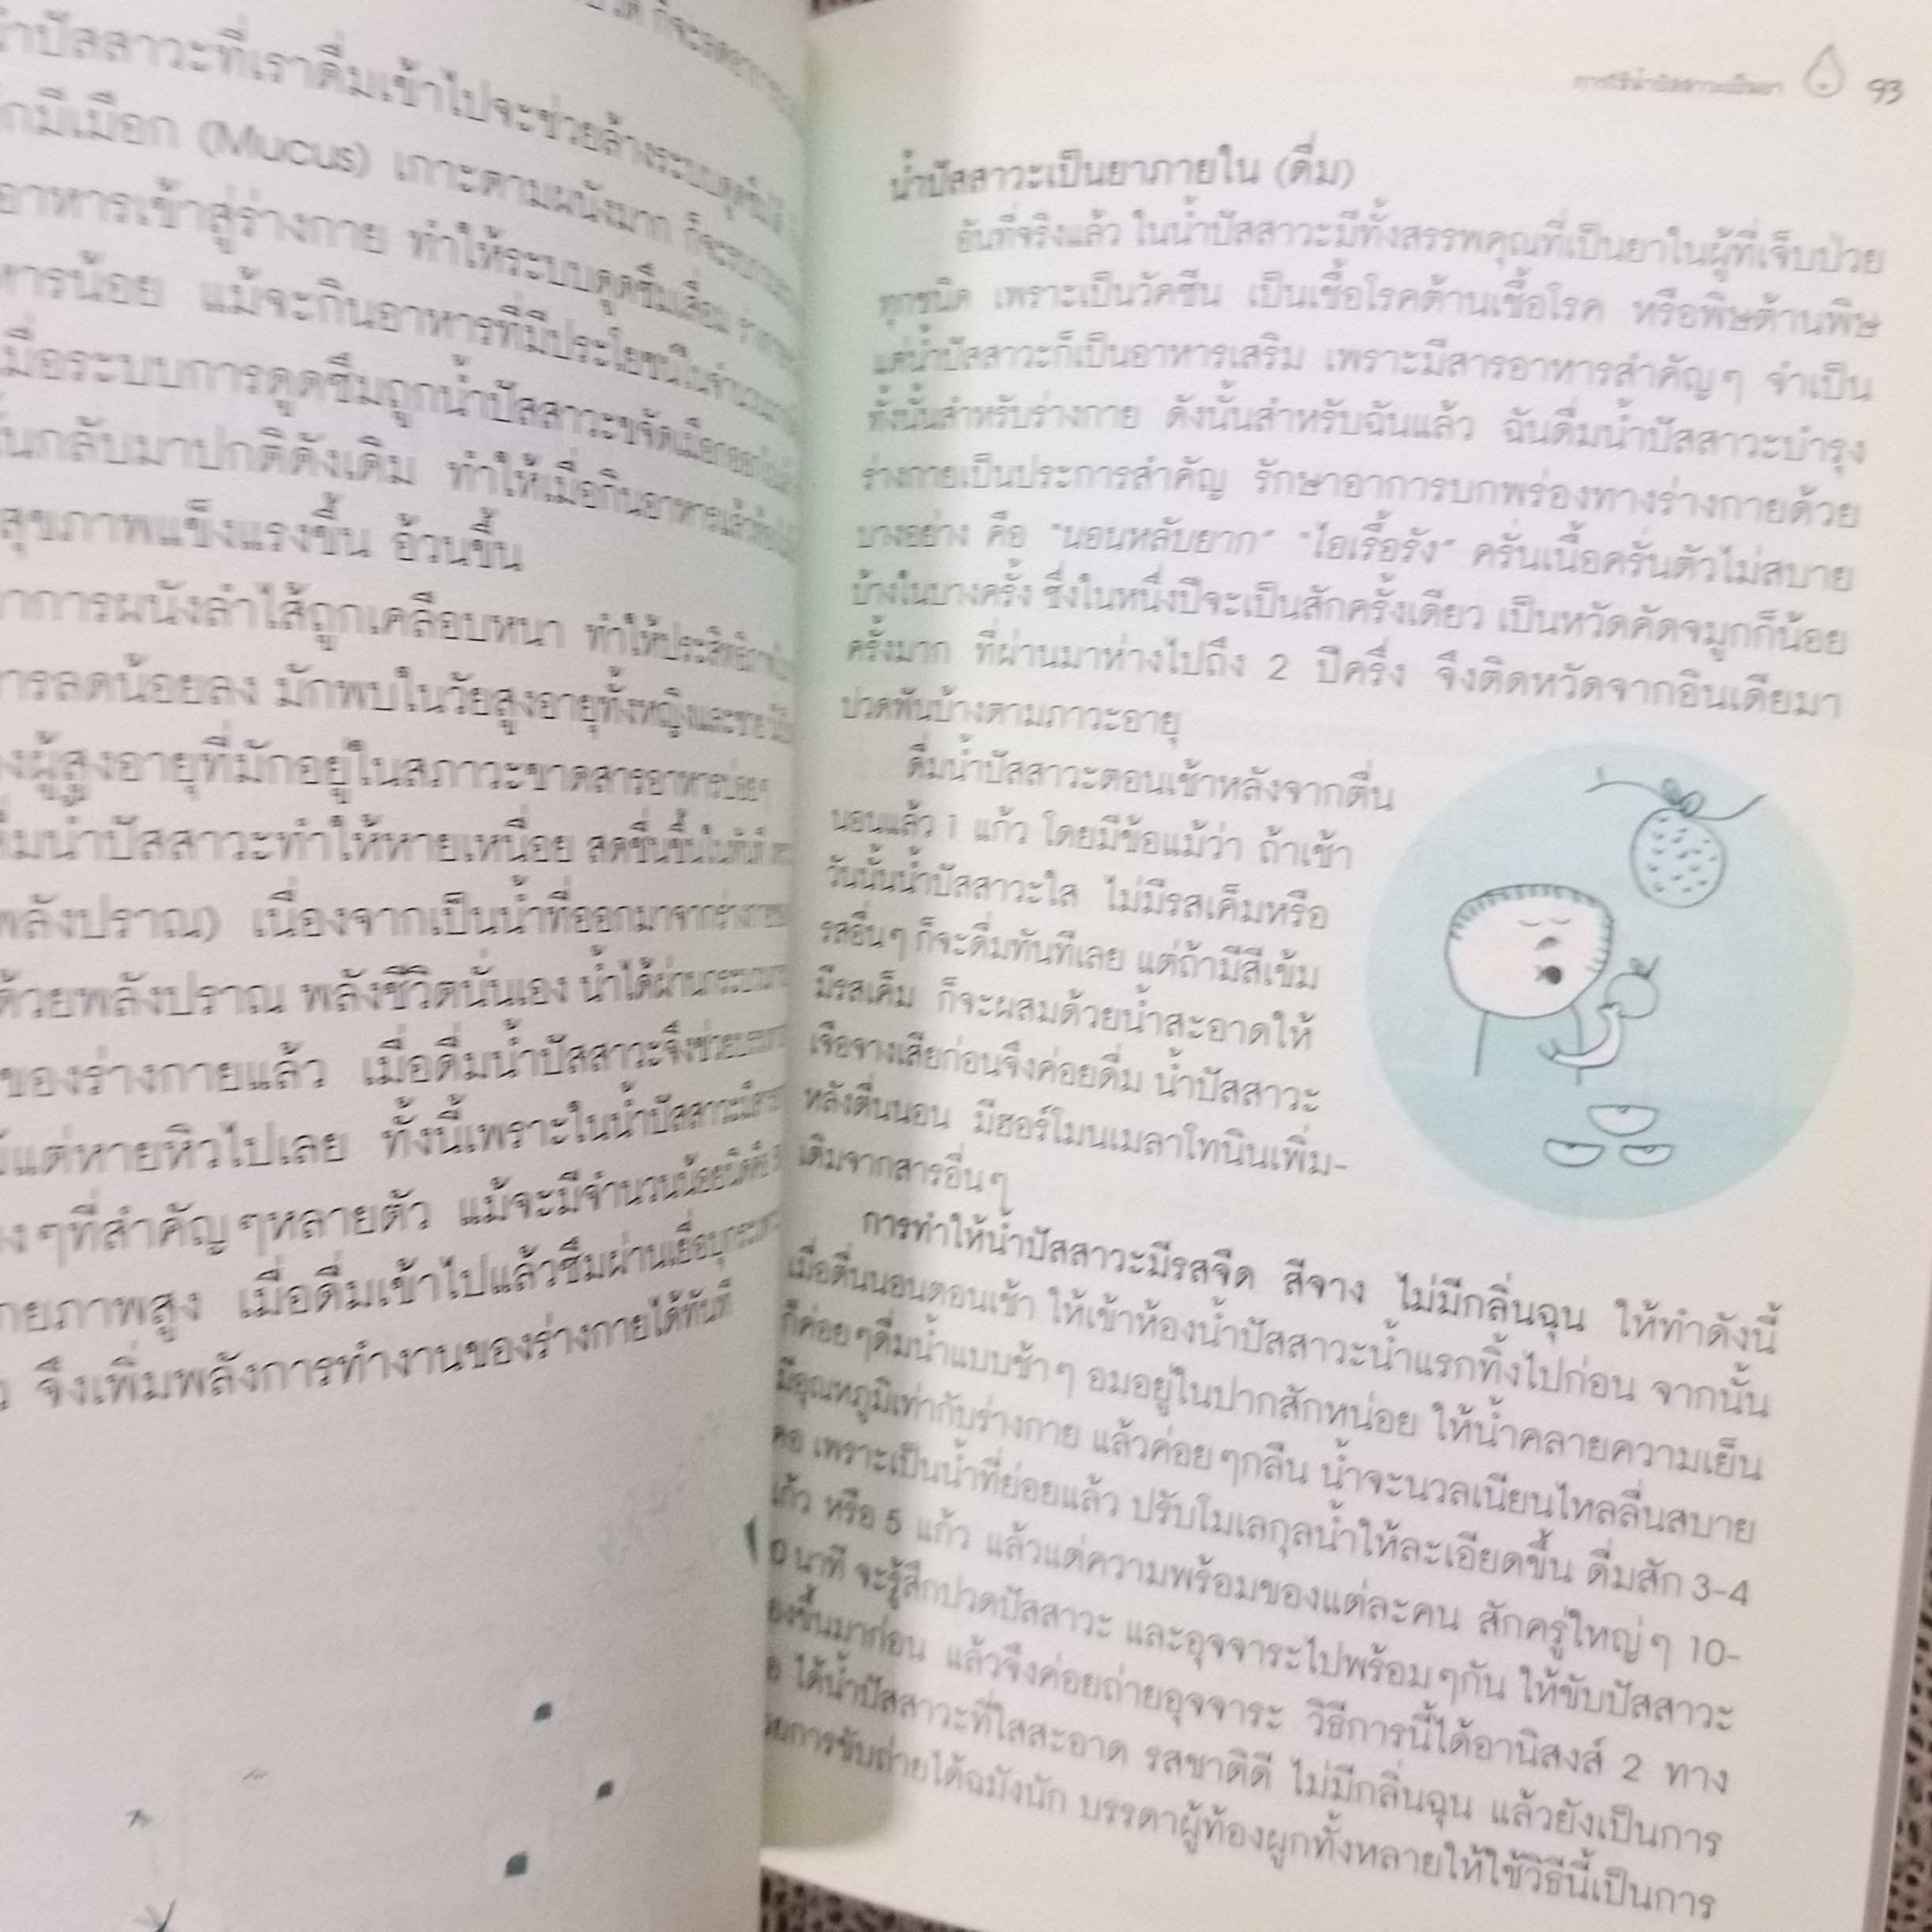 น้ำปัสสาวะที่เราดื่มเข้าไปจะช่วยล้างระบบดูดซึม
มีเมือก (Mucus) เกาะตามผนังมาก ก็จะรบกวน
อาหารเข้าสู่ร่างกาย ทำให้ระบบดูดซึมเสื่อม
หารน้อย แม้จะกินอาหารที่มีประโยชน์ในจำนวน
เมื่อระบบการดูดซึมถูกน้ำปัสสาวะขจัดเมือกออก
กลับมาปกติดังเดิม ทำให้เมื่อกินอาหารแล้ว
สุขภาพแข็งแรงขึ้น อ้วนขึ้น
อาการผนังลำไส้ถูกเคลือบหนา ทำให้ประสิทธิภาพ
ารลดน้อยลง มักพบในวัยสูงอายุทั้งหญิงและชาย
ผู้สูงอายุที่มักอยู่ในสภาวะขาดสารอาหารบ่อยๆ
ดื่มน้ำปัสสาวะทำให้หายเหนื่อย สดชื่นขึ้นในทันที
พลังปราณ) เนื่องจากเป็นน้ำที่ออกมาจากร่างกาย
ด้วยพลังปราณ พลังชีวิตนั่นเอง น้ำได้ผ่านกระบวน
ของร่างกายแล้ว เมื่อดื่มน้ำปัสสาวะจึงช่วย
แต่หายหิวไปเลย ทั้งนี้เพราะในน้ำปัสสาวะ
งๆที่สำคัญๆหลายตัว แม้จะมีจำนวนน้อยนิด
ายภาพสูง เมื่อดื่มเข้าไปแล้วซึมผ่านเยื่อบุ
จึงเพิ่มพลังการทำงานของร่างกายได้ทันที
การใช้น้ำปัสสาวะเป็นยา 93
น้ำปัสสาวะเป็นยาภายใน (ดื่ม)
อันที่จริงแล้ว ในน้ำปัสสาวะมีทั้งสรรพคุณที่เป็นยาในผู้ที่เจ็บป่วย
ทุกชนิด เพราะเป็นวัคซีน เป็นเชื้อโรคต้านเชื้อโรค หรือพิษต้านพิษ
แต่น้ำปัสสาวะก็เป็นอาหารเสริม เพราะมีสารอาหารสำคัญๆ จำเป็น
ทั้งนั้นสำหรับร่างกาย ดังนั้นสำหรับฉันแล้ว ฉันดื่มน้ำปัสสาวะบำรุง
ร่างกายเป็นประการสำคัญ รักษาอาการบกพร่องทางร่างกายด้วย
บางอย่าง คือ "นอนหลับยาก" "ไอเรื้อรัง" ครั่นเนื้อครั่นตัวไม่สบาย
บ้างในบางครั้ง ซึ่งในหนึ่งปีจะเป็นสักครั้งเดียว เป็นหวัดคัดจมูกก็น้อย
ครั้งมาก ที่ผ่านมาห่างไปถึง 2 ปีครึ่ง จึงติดหวัดจากอินเดียมา
ปวดฟันบ้างตามภาวะอายุ
ดื่มน้ำปัสสาวะตอนเช้าหลังจากตื่น
นอนแล้ว 1 แก้ว โดยมีข้อแม้ว่า ถ้าเช้า
วันนั้นน้ำปัสสาวะใส ไม่มีรสเค็มหรือ
รสอื่นๆ ก็จะดื่มทันทีเลย แต่ถ้ามีสีเข้ม
มีรสเค็ม ก็จะผสมด้วยน้ำสะอาดให้
เจือจางเสียก่อนจึงค่อยดื่ม น้ำปัสสาวะ
หลังตื่นนอน มีฮอร์โมนเมลาโทนินเพิ่ม-
เติมจากสารอื่นๆ
การทำให้น้ำปัสสาวะมีรสจืด สีจาง ไม่มีกลิ่นฉุน ให้ทำดังนี้
เมื่อตื่นนอนตอนเช้า ให้เข้าห้องน้ำปัสสาวะน้ำแรกทิ้งไปก่อน จากนั้น
ก็ค่อยๆดื่มน้ำแบบช้าๆ อมอยู่ในปากสักหน่อย ให้น้ำคลายความเย็น
มีอุณหภูมิเท่ากับร่างกาย แล้วค่อยๆกลืน น้ำจะนวลเนียนไหลลื่นสบาย
คอ เพราะเป็นน้ำที่ย่อยแล้ว ปรับโมเลกุลน้ำให้ละเอียดขึ้น ดื่มสัก 3-4
แก้ว หรือ 5 แก้ว แล้วแต่ความพร้อมของแต่ละคน สักครู่ใหญ่ๆ 10-
0 นาที จะรู้สึกปวดปัสสาวะ และอุจจาระไปพร้อมๆกัน ให้ขับปัสสาวะ
องขึ้นมาก่อน แล้วจึงค่อยถ่ายอุจจาระ วิธีการนี้ได้อานิสงส์ 2 ทาง
อ ได้น้ำปัสสาวะที่ใสสะอาด รสชาติดี ไม่มีกลิ่นฉุน แล้วยังเป็นการ
ยการขับถ่ายได้ฉมังนัก บรรดาผู้ท้องผูกทั้งหลายให้ใช้วิธีนี้เป็นการ